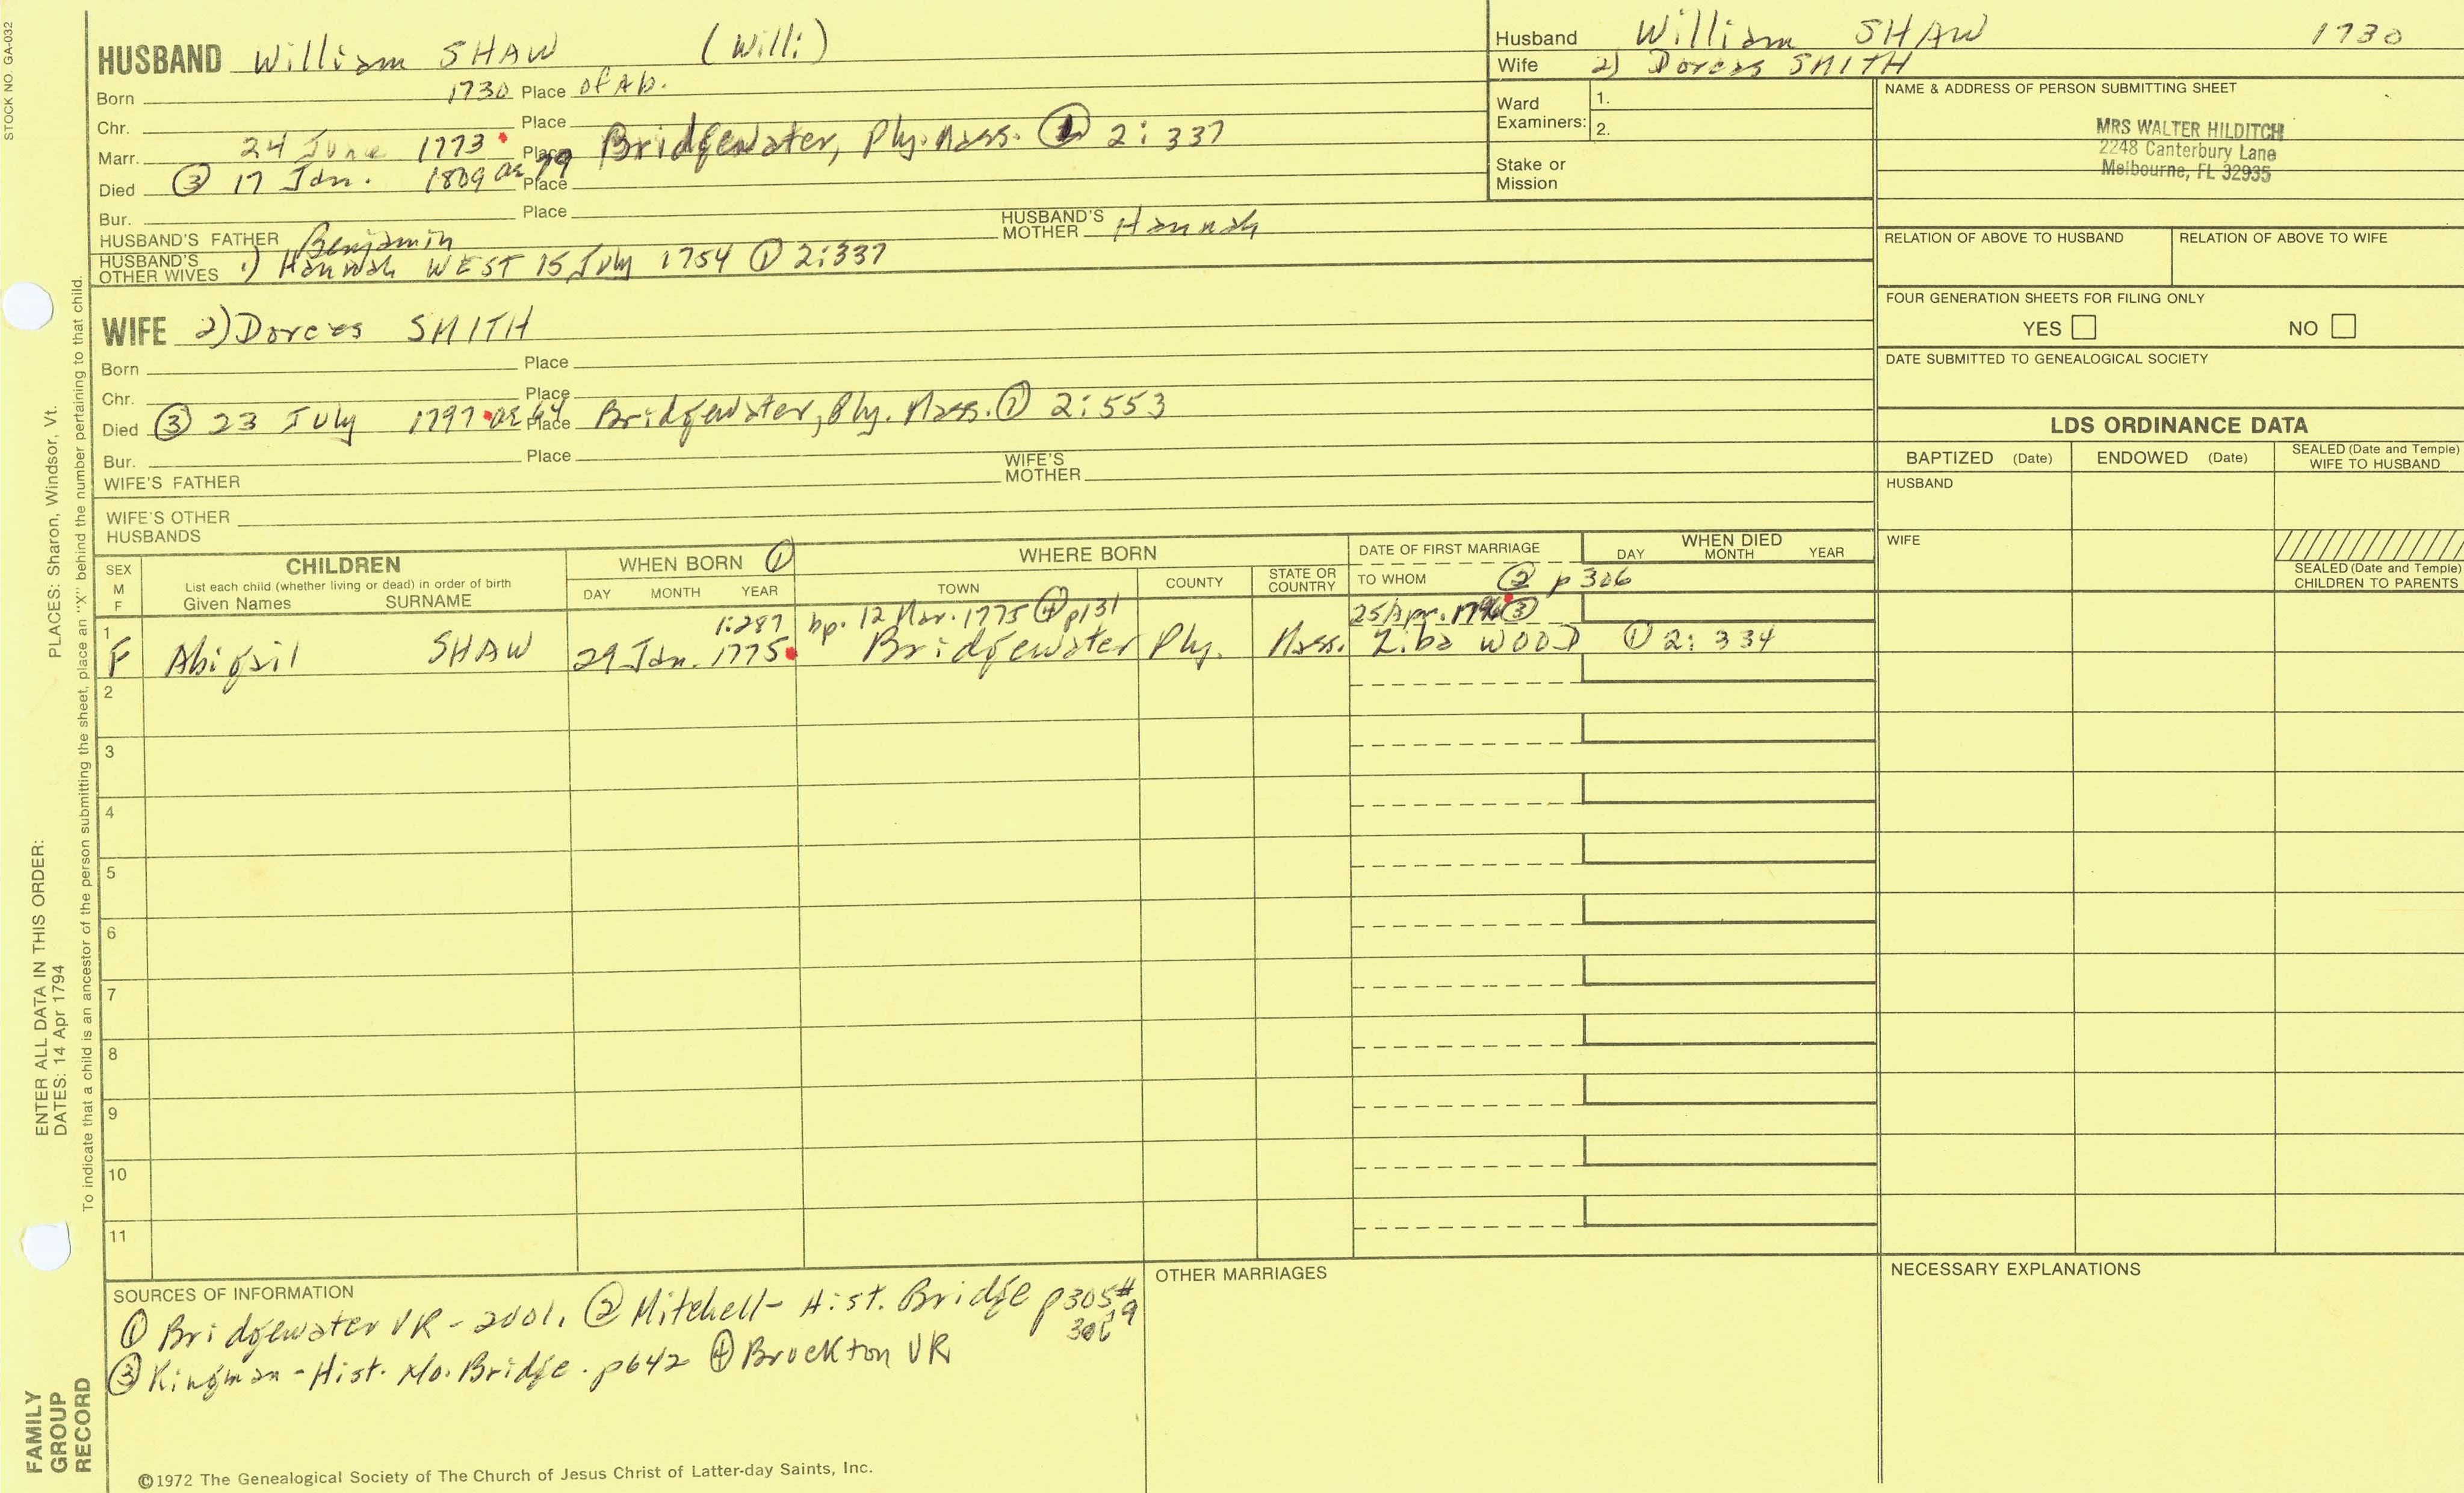 STOCK NO. GA-032
HUSBAND William SHAW (Willi)
Born 1730 Place of Ab.
Chr. Place
Marr. 24 June 1773 Place Bridgewater, Ply. Mass. ① 2:337
Died ③ 17 Jan. 1809 ae 79 Place
Bur. Place
HUSBAND'S FATHER Benjamin HUSBAND'S MOTHER Hannah
HUSBAND'S OTHER WIVES 1) Hannah WEST 15 July 1754 ① 2:337
WIFE 2) Dorcas SMITH
Born Place
Chr. Place
Died ③ 23 July 1797 ae 64 Place Bridgewater, Ply. Mass. ① 2:553
Bur. Place
WIFE'S FATHER WIFE'S MOTHER
WIFE'S OTHER HUSBANDS
Husband William SHAW 1730
Wife 2) Dorcas SMITH
Ward Examiners: 1.
2.
Stake or Mission
NAME & ADDRESS OF PERSON SUBMITTING SHEET
MRS WALTER HILDITCH
2248 Canterbury Lane
Melbourne, FL 32935
RELATION OF ABOVE TO HUSBAND RELATION OF ABOVE TO WIFE
FOUR GENERATION SHEETS FOR FILING ONLY
YES NO
DATE SUBMITTED TO GENEALOGICAL SOCIETY
LDS ORDINANCE DATA
BAPTIZED (Date) ENDOWED (Date) SEALED (Date and Temple) WIFE TO HUSBAND
HUSBAND
WIFE
SEALED (Date and Temple) CHILDREN TO PARENTS
SEX M F
CHILDREN
List each child (whether living or dead) in order of birth
Given Names SURNAME
WHEN BORN ①
DAY MONTH YEAR
WHERE BORN
TOWN COUNTY STATE OR COUNTRY
DATE OF FIRST MARRIAGE
TO WHOM ② p 306
WHEN DIED
DAY MONTH YEAR
1:287 bp. 12 Mar. 1775 ④ p131 25 Apr. 1796 ③
1 F Abigail SHAW 29 Jan. 1775 Bridgewater Ply. Mass. Ziba WOOD ① 2:334
2
3
4
5
6
7
8
9
10
11
SOURCES OF INFORMATION
① Bridgewater VR - 2vol. ② Mitchell - Hist. Bridge p305 #19
306
③ Kingman - Hist. No. Bridge. p642 ④ Brockton VR
OTHER MARRIAGES
NECESSARY EXPLANATIONS
©1972 The Genealogical Society of The Church of Jesus Christ of Latter-day Saints, Inc.
FAMILY GROUP RECORD
ENTER ALL DATA IN THIS ORDER:
DATES: 14 Apr 1794
PLACES: Sharon, Windsor, Vt.
To indicate that a child is an ancestor of the person submitting the sheet, place an "X" behind the number pertaining to that child.